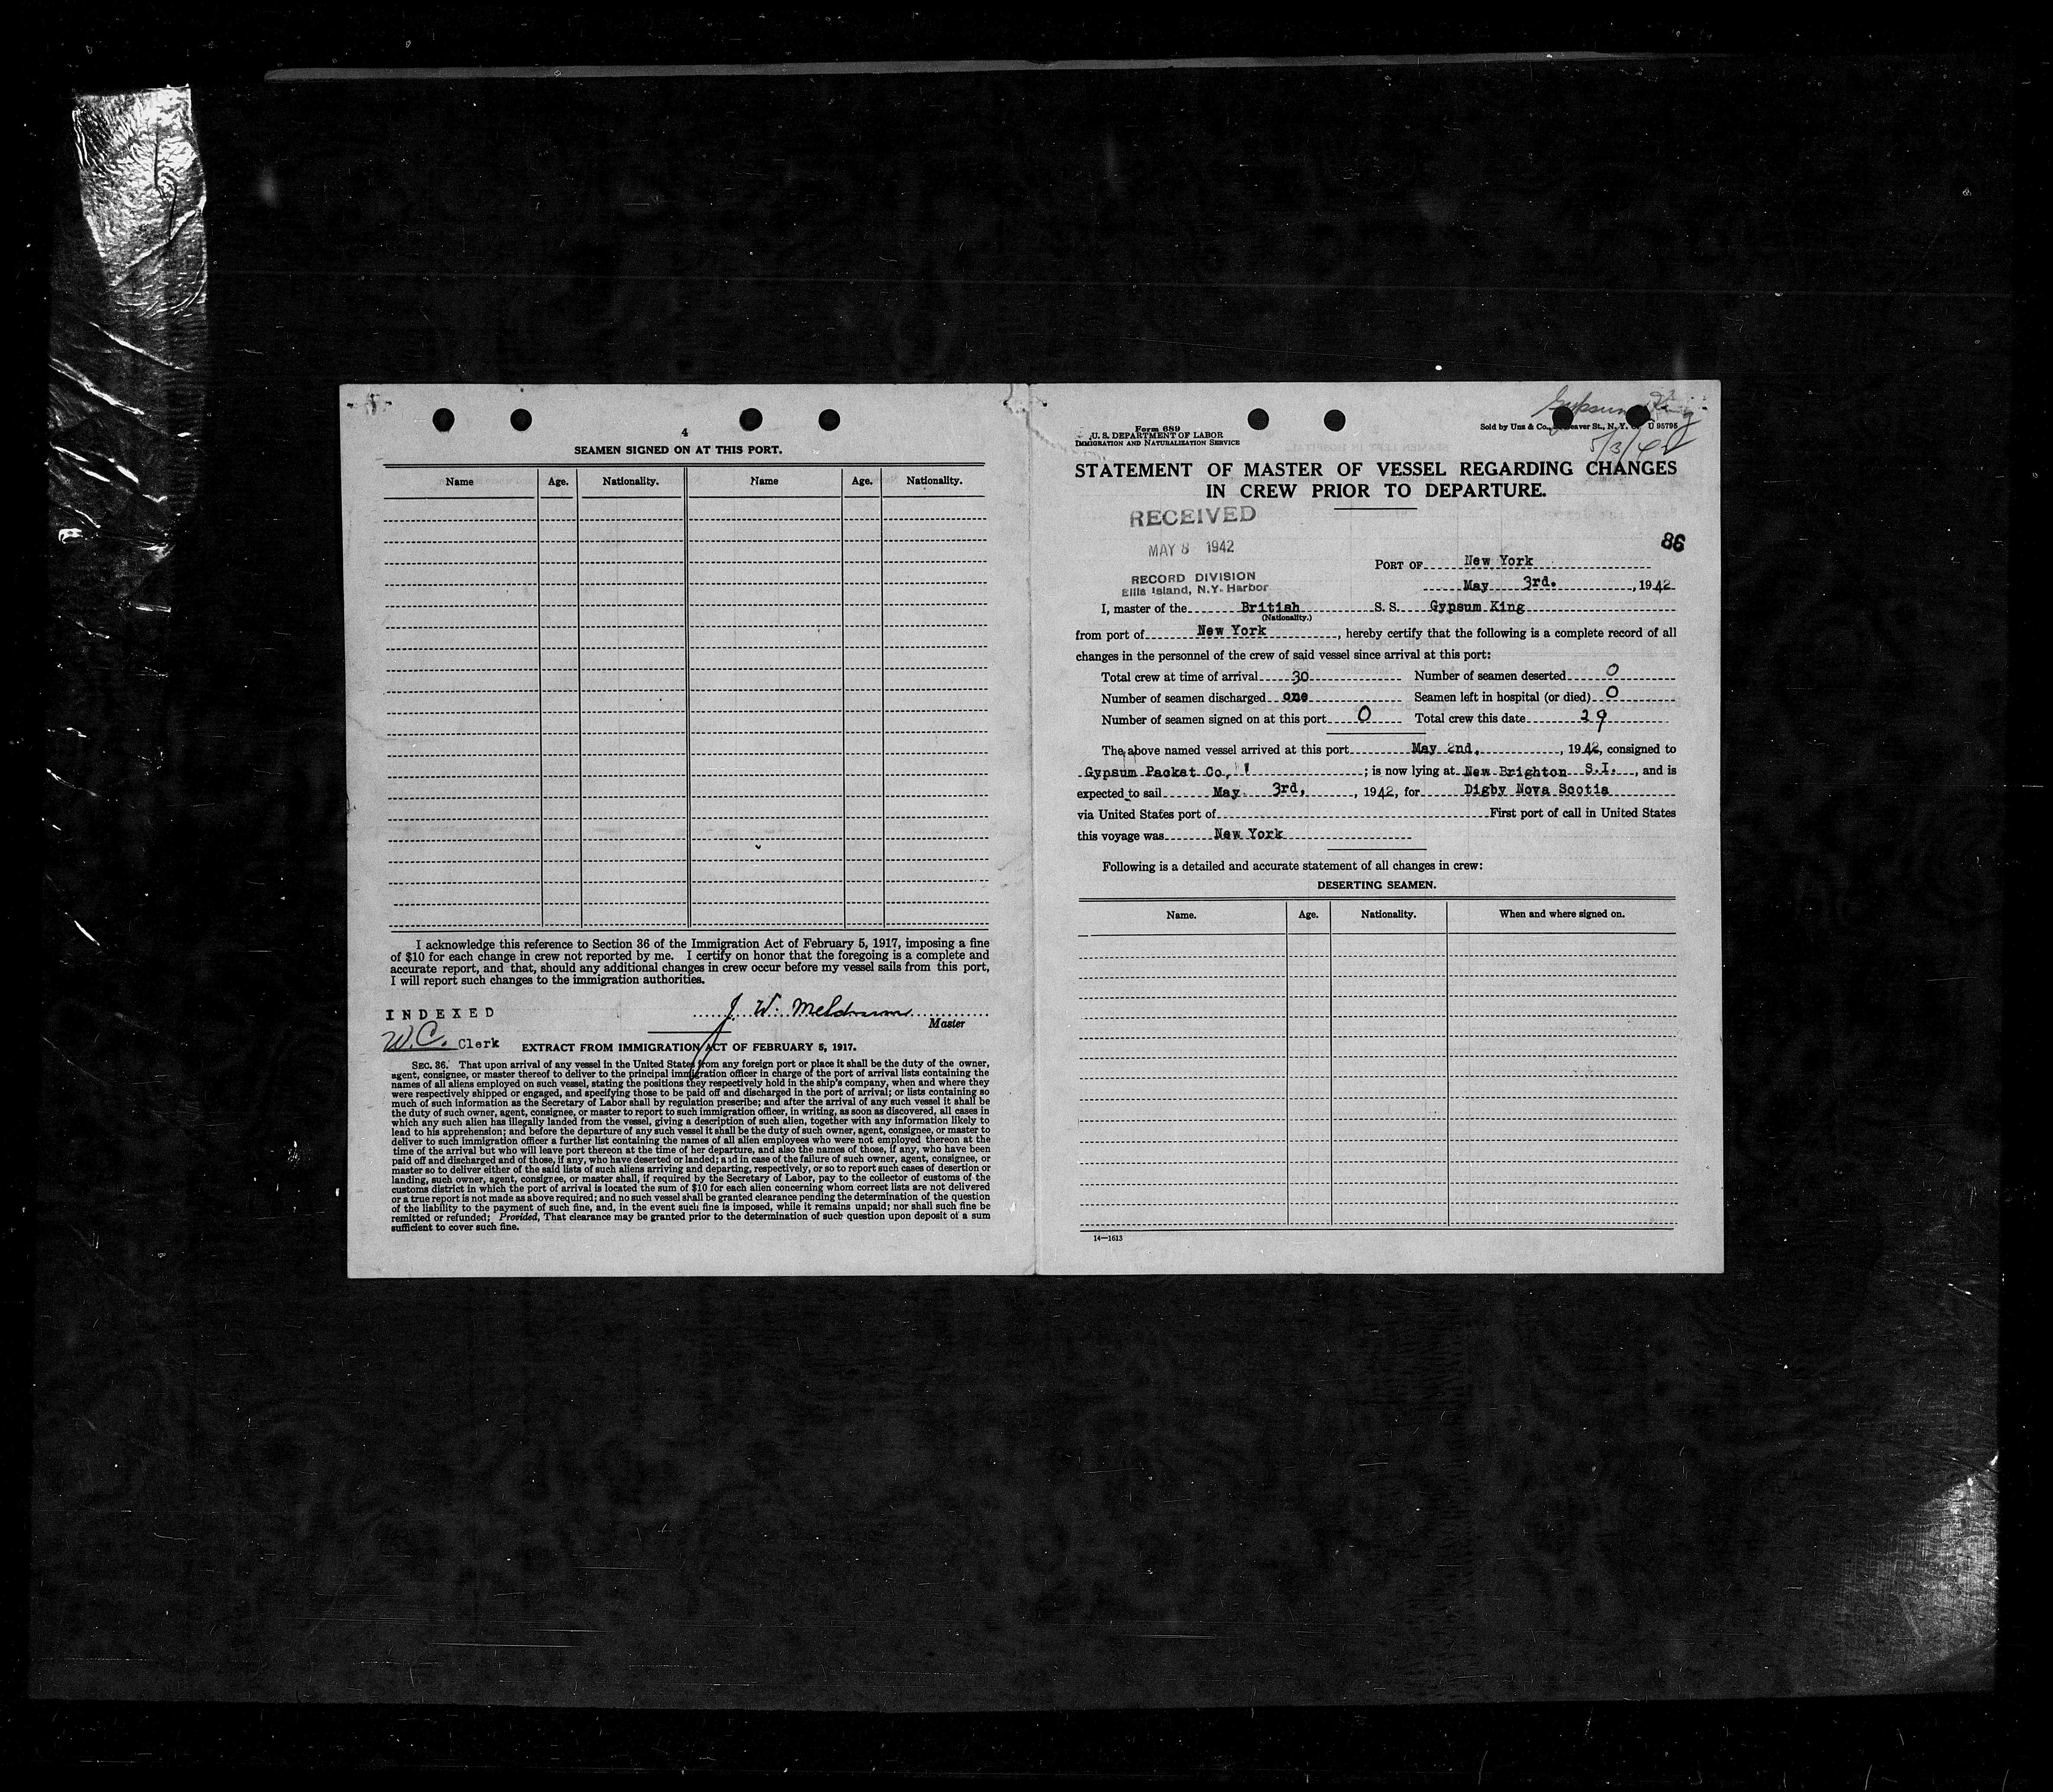 4
SEAMEN SIGNED ON AT THIS PORT.
Name Age. Nationality. Name Age. Nationality.
I acknowledge this reference to Section 36 of the Immigration Act of February 5, 1917, imposing a fine
of $10 for each change in crew not reported by me. I certify on honor that the foregoing is a complete and
accurate report, and that, should any additional changes in crew occur before my vessel sails from this port,
I will report such changes to the immigration authorities.
INDEXED
J. W. Meldrum
Master
W.C. Clerk
EXTRACT FROM IMMIGRATION ACT OF FEBRUARY 5, 1917.
SEC. 36. That upon arrival of any vessel in the United States from any foreign port or place it shall be the duty of the owner,
agent, consignee, or master thereof to deliver to the principal immigration officer in charge of the port of arrival lists containing the
names of all aliens employed on such vessel, stating the positions they respectively hold in the ship's company, when and where they
were respectively shipped or engaged, and specifying those to be paid off and discharged in the port of arrival; or lists containing so
much of such information as the Secretary of Labor shall by regulation prescribe; and after the arrival of any such vessel it shall be
the duty of such owner, agent, consignee, or master to report to such immigration officer, in writing, as soon as discovered, all cases in
which any such alien has illegally landed from the vessel, giving a description of such alien, together with any information likely to
lead to his apprehension; and before the departure of any such vessel it shall be the duty of such owner, agent, consignee, or master to
deliver to such immigration officer a further list containing the names of all alien employees who were not employed thereon at the
time of the arrival but who will leave port thereon at the time of her departure, and also the names of those, if any, who have been
paid off and discharged and of those, if any, who have deserted or landed; and in case of the failure of such owner, agent, consignee, or
master so to deliver either of the said lists of such aliens arriving and departing, respectively, or so to report such cases of desertion or
landing, such owner, agent, consignee, or master shall, if required by the Secretary of Labor, pay to the collector of customs of the
customs district in which the port of arrival is located the sum of $10 for each alien concerning whom correct lists are not delivered
or a true report is not made as above required; and no such vessel shall be granted clearance pending the determination of the question
of the liability to the payment of such fine, and, in the event such fine is imposed, while it remains unpaid; nor shall such fine be
remitted or refunded; Provided, That clearance may be granted prior to the determination of such question upon deposit of a sum
sufficient to cover such fine.
Gypsum King
5/3/42
Form 689
U. S. DEPARTMENT OF LABOR
IMMIGRATION AND NATURALIZATION SERVICE
Sold by Unz & Co., Beaver St., N. Y. C. U 95795
STATEMENT OF MASTER OF VESSEL REGARDING CHANGES
IN CREW PRIOR TO DEPARTURE.
RECEIVED
MAY 8 1942
RECORD DIVISION
Ellis Island, N.Y. Harbor
86
PORT OF New York
May 3rd. , 1942
I, master of the British S. S. Gypsum King
(Nationality.)
from port of New York , hereby certify that the following is a complete record of all
changes in the personnel of the crew of said vessel since arrival at this port:
Total crew at time of arrival 30 Number of seamen deserted 0
Number of seamen discharged one Seamen left in hospital (or died) 0
Number of seamen signed on at this port 0 Total crew this date 29
The above named vessel arrived at this port May 2nd, , 1942, consigned to
Gypsum Packet Co, ; is now lying at New Brighton S.I. , and is
expected to sail May 3rd, , 1942, for Digby Nova Scotia
via United States port of First port of call in United States
this voyage was New York
Following is a detailed and accurate statement of all changes in crew:
DESERTING SEAMEN.
Name. Age. Nationality. When and where signed on.
14—1613